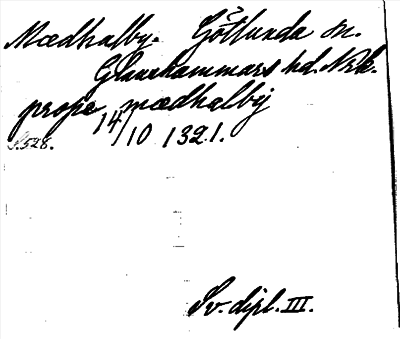 Mædhalby. Götlunda sn.
Glanshammars hd. Nrk.
prope mædhalbÿ
14/10 1321.
S. 528.
Sv. dipl. III.